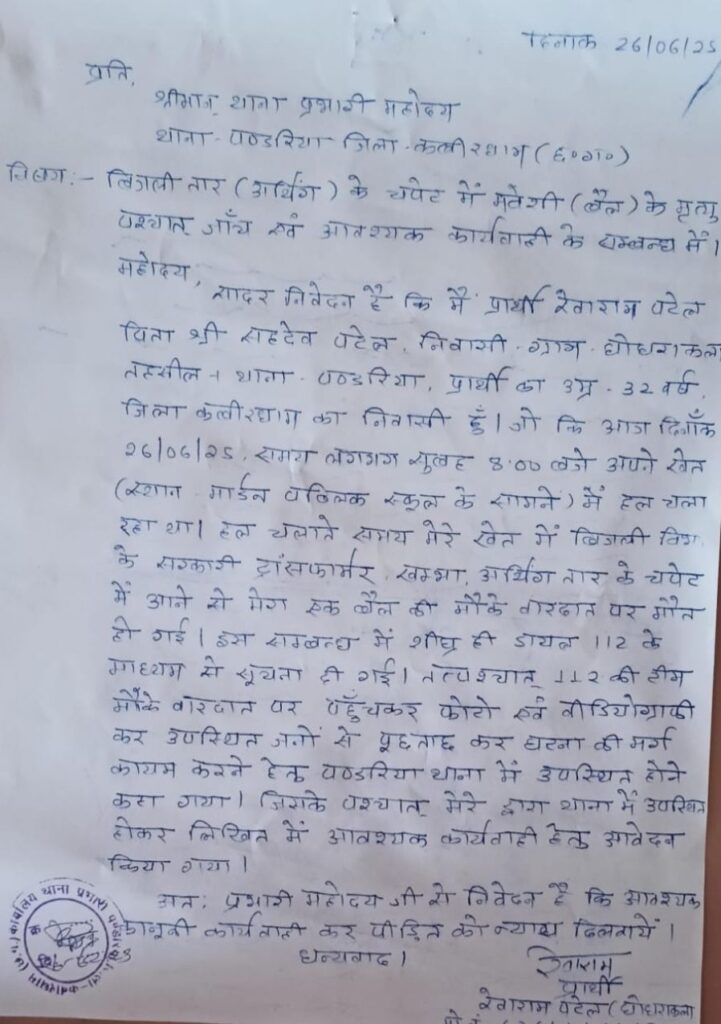 दिनांक 26/06/25
प्रति,
श्रीमान् थाना प्रभारी महोदय
थाना - पण्डरिया जिला - कबीरधाम (छ०ग०)
विषय :- बिजली तार (अर्थिंग) के चपेट में मवेशी (बैल) के मृत्यु
पश्चात् जाँच एवं आवश्यक कार्यवाही के सम्बन्ध में।
महोदय,
सादर निवेदन है कि मैं प्रार्थी रेवाराम पटेल
पिता श्री सहदेव पटेल, निवासी - ग्राम - घोघराकला
तहसील + थाना - पण्डरिया, प्रार्थी का उम्र - 32 वर्ष,
जिला कबीरधाम का निवासी हूँ। जो कि आज दिनाँक
26/06/25, समय लगभग सुबह 8:00 बजे अपने खेत
(स्थान - गार्डन पब्लिक स्कूल के सामने) में हल चला
रहा था। हल चलाते समय मेरे खेत में बिजली विभा.
के सरकारी ट्रांसफार्मर, खम्भा, अर्थिंग तार के चपेट
में आने से मेरा एक बैल की मौके वारदात पर मौत
हो गई। इस सम्बन्ध में शीघ्र ही डायल 112 के
माध्यम से सूचना दी गई। तत्पश्चात् 112 की टीम
मौके वारदात पर पहुँचकर फोटो एवं वीडियोग्राफी
कर उपस्थित जनों से पूछताछ कर घटना की मर्ग
कायम करने हेतु पण्डरिया थाना में उपस्थित होने
कहा गया। जिसके पश्चात् मेरे द्वारा थाना में उपस्थित
होकर लिखित में आवश्यक कार्यवाही हेतु आवेदन
किया गया।
अतः प्रभारी महोदय जी से निवेदन है कि आवश्यक
कानूनी कार्यवाही कर पीड़ित को न्याय दिलवायें।
धन्यवाद।
रेवाराम
प्रार्थी
रेवाराम पटेल (घोघराकला
कार्यालय थाना प्रभारी